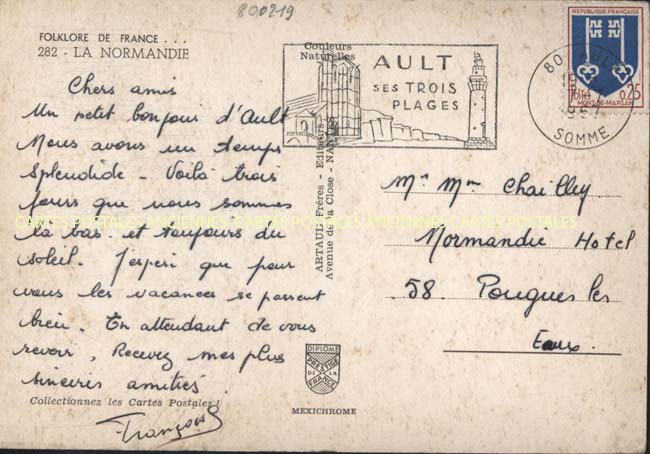 800219
FOLKLORE DE FRANCE . . .
282 - LA NORMANDIE
Chers amis
Un petit bonjour d'Ault
Nous avons un temps
splendide - Voilà trois
jours que nous sommes
là bas. et toujours du
soleil. J'esperi que pour
vous les vacances se passent
bien. En attendant de vous
revoir, Recevez mes plus
sinceres amitiés.
Collectionnez les Cartes Postales !
François
Couleurs
Naturelles
ARTAUD Frères - Editeurs
Avenue de la Close - NANTES
DIPLOME
PRESTIGE
DE LA
FRANCE
MEXICHROME
AULT
SES TROIS
PLAGES
80 AULT
1967
SOMME
REPUBLIQUE FRANÇAISE
POSTES 0,25
MONT-DE-MARSAN
Mr Mme Chailley
Normandie Hotel
58. Pougues les
Eaux.
CARTES POSTALES ANCIENNES CARTES POSTALES ANCIENNES CARTES POSTALES